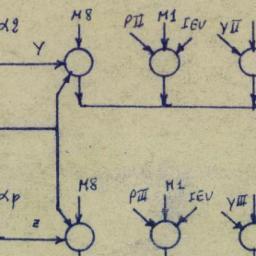 α2 M8 PII M1 IEU YII
Y
αp M8 PIII M1 IEU YIII
z